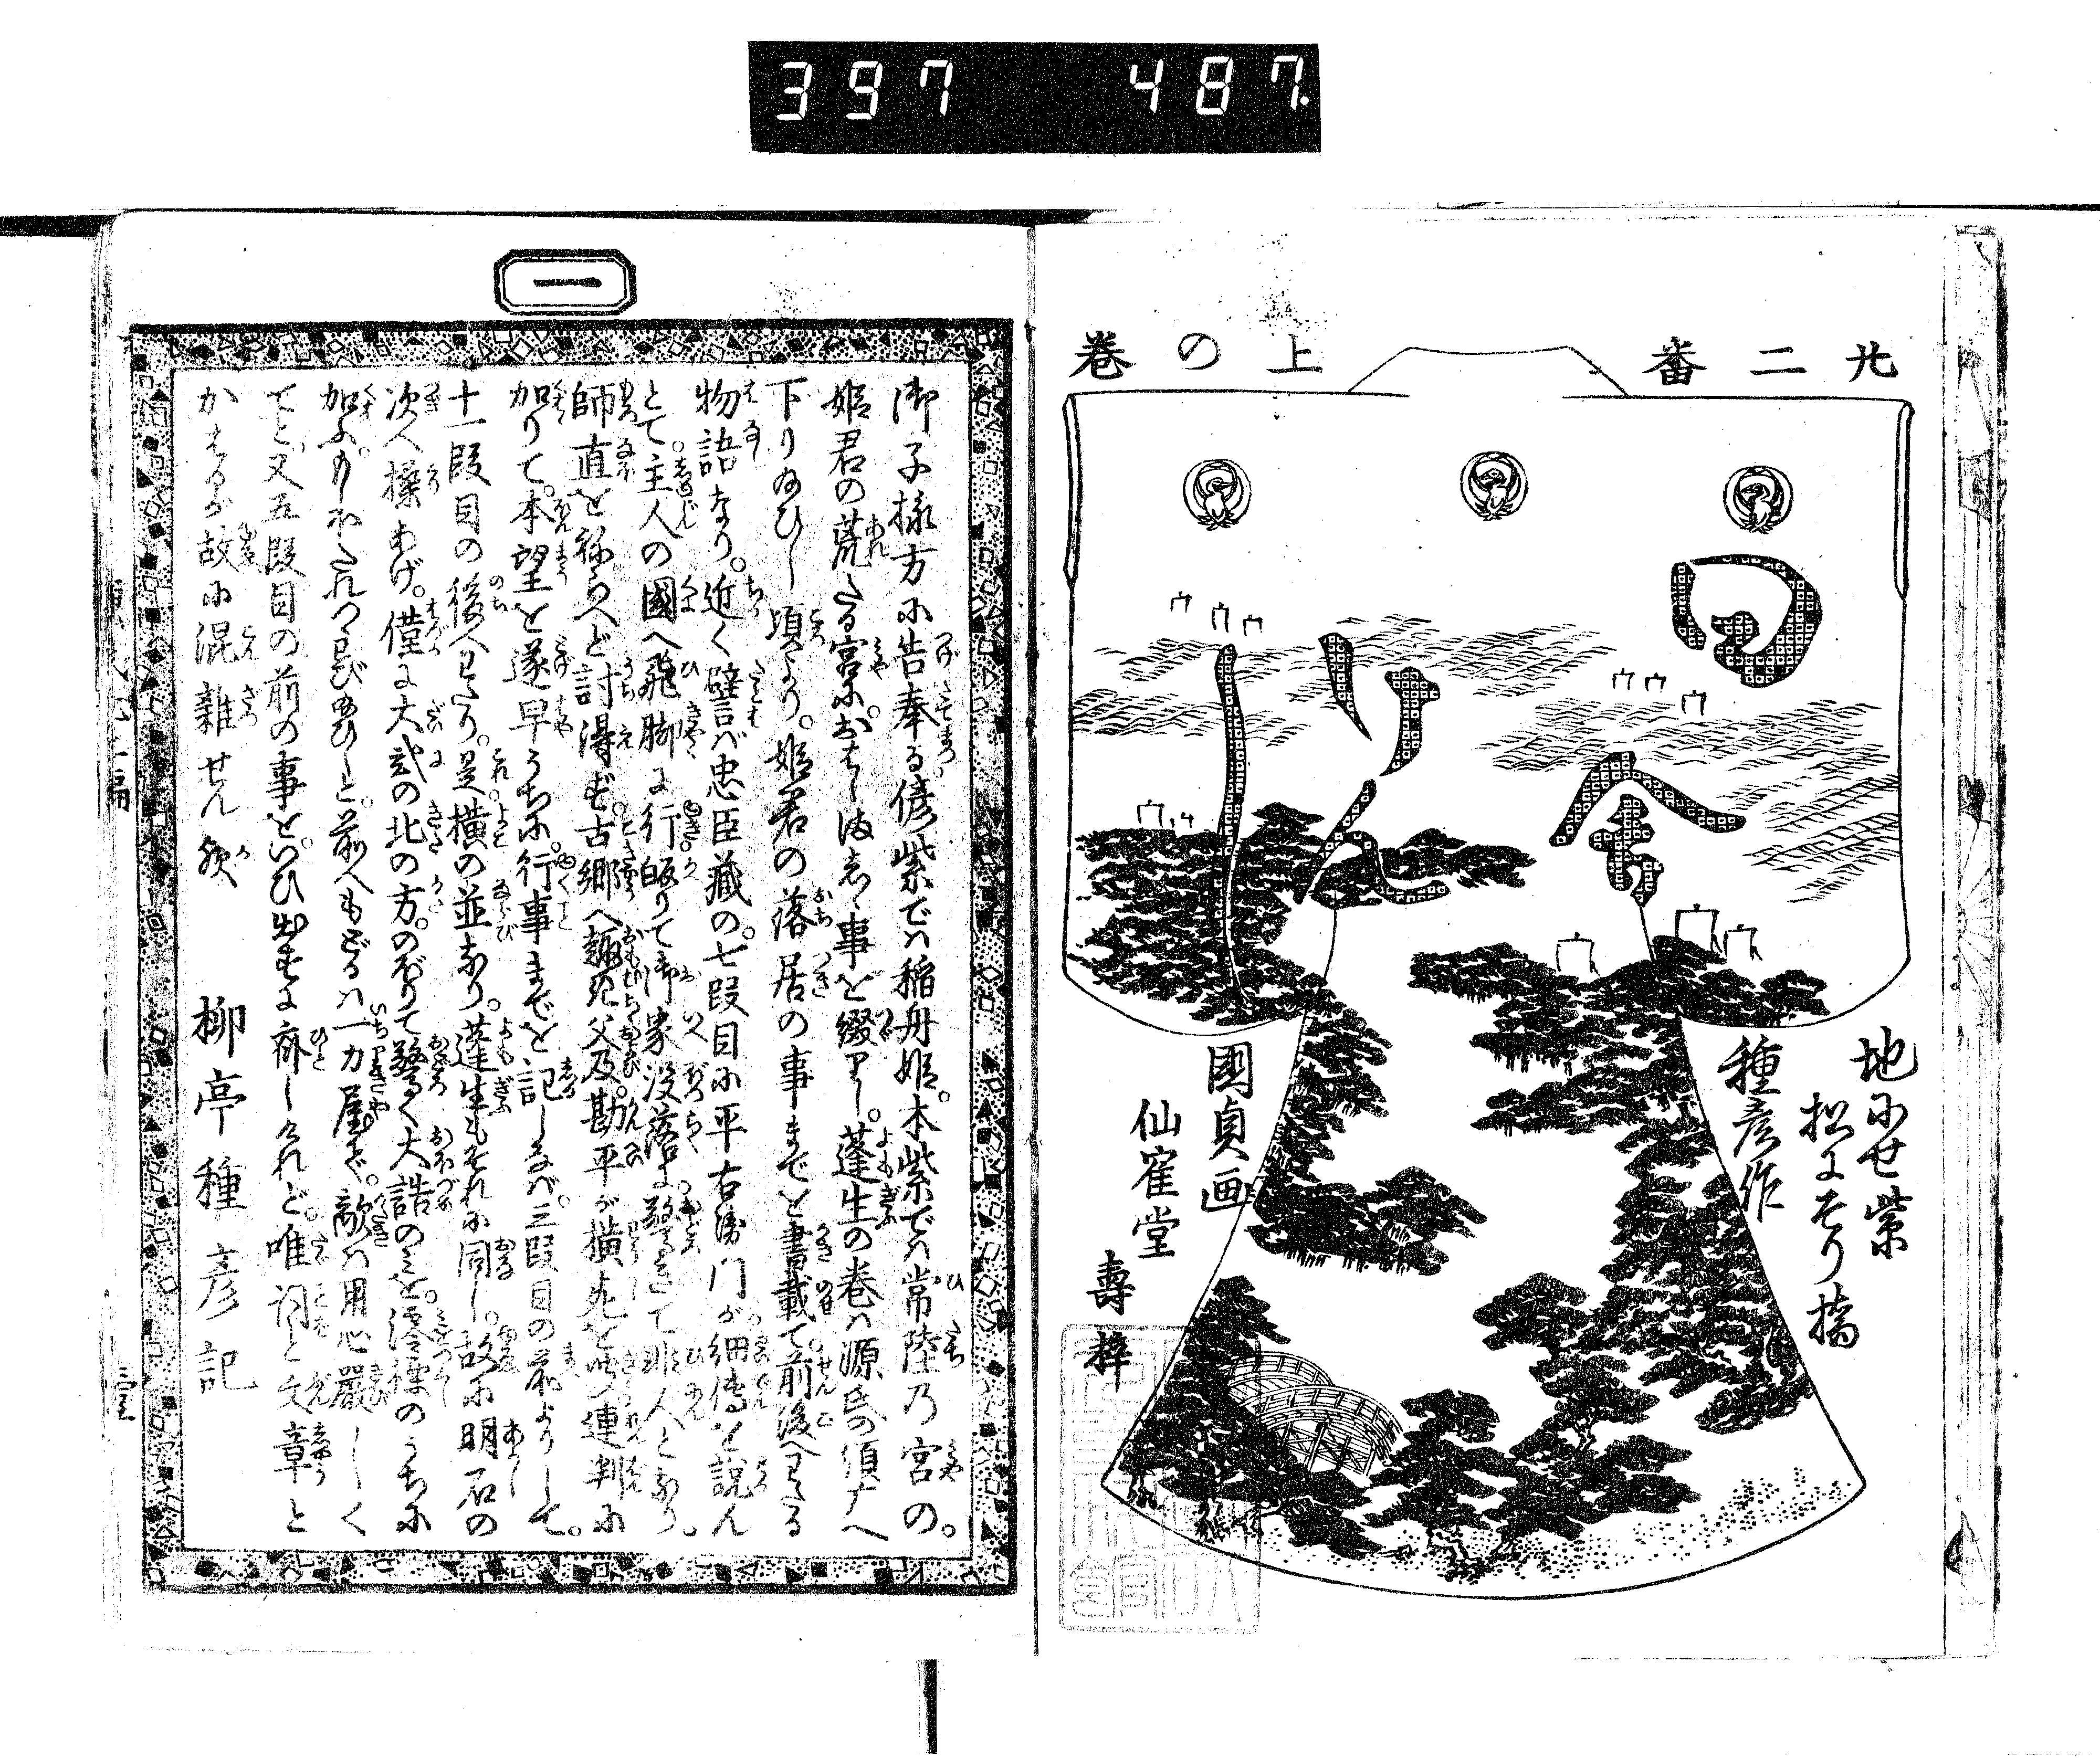 397 487.
廿二番
上の巻
地にせ紫
松にそり橋
種彦作
國貞画
仙寉堂
壽梓
一
御子様方に告奉る偐紫では稲舟姫。本紫では常陸乃宮の。
姫君の荒たる宮に。おはしませし事を綴りし。蓬生の巻は源氏の須广へ
下り給ひし頃より。姫君の落居の事までを書載て前後へわたる
物語なり。近く譬ば忠臣蔵の。七段目に平右衛門が細傳を説ん
とて。主人の國へ飛脚に行皈りて御家没落に驚きて非人となり。
師直を祢らへど討得ず。古郷へ趣死父及。勘平が横死を噂連判に
加りて。本望を遂早うちに。行事までを記しなば。三段目の前よりして。
十一段目の後へわたり。是横の並なり。蓬生もそれに同じ。故に明石の
次へ操あげ。僅に大弐の北の方。のぼりて驚く大詰のミを。澪標のうちに
加ふ。
と。前へもどるハ一力屋で。敵ハ用心厳しく
てと。又五段目の前の事を。いひ出すに齊しけれど。唯詞と文章と
かはるが故に混雑せん歟
柳亭種彦記